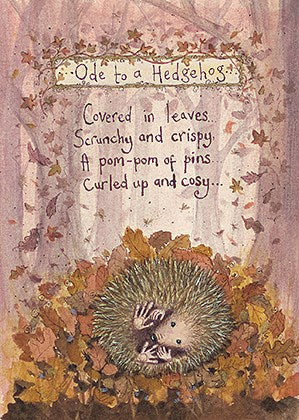 Ode to a Hedgehog...
Covered in leaves...
Scrunchy and crispy.
A pom-pom of pins...
Curled up and cosy...